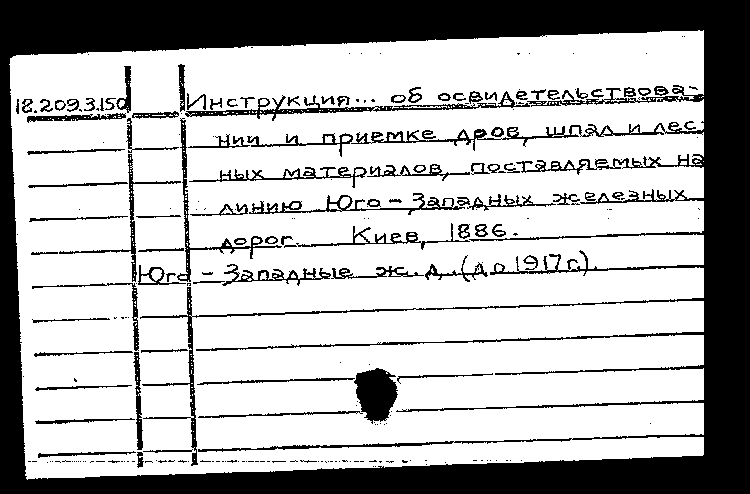 18.209.3.150 Инструкция... об освидетельствова-
нии и приемке дров, шпал и лес
ных материалов, поставляемых на
линию Юго-Западных железных
дорог. Киев, 1886.
Юго-Западные ж. д. (до 1917 г.).